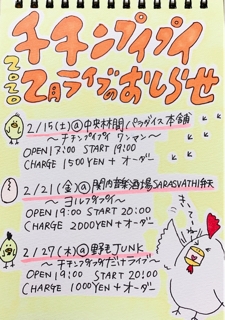 チチンプイプイ
2020
2月ライブのおしらせ
2/15(土)@中央林間パラダイス本舗
〜チチンプイプイ ワンマン〜
OPEN 17:00 START 19:00
CHARGE 1500YEN+オーダー
2/21(金)@関内音楽酒場SARASVATHI弁天
OPEN 19:00 START 20:00
CHARGE 2000YEN+オーダー
2/27(木)@野毛JUNK
〜チチンプイプイだけライブ〜
OPEN 19:00 START 20:00
CHARGE 1000YEN+オーダー